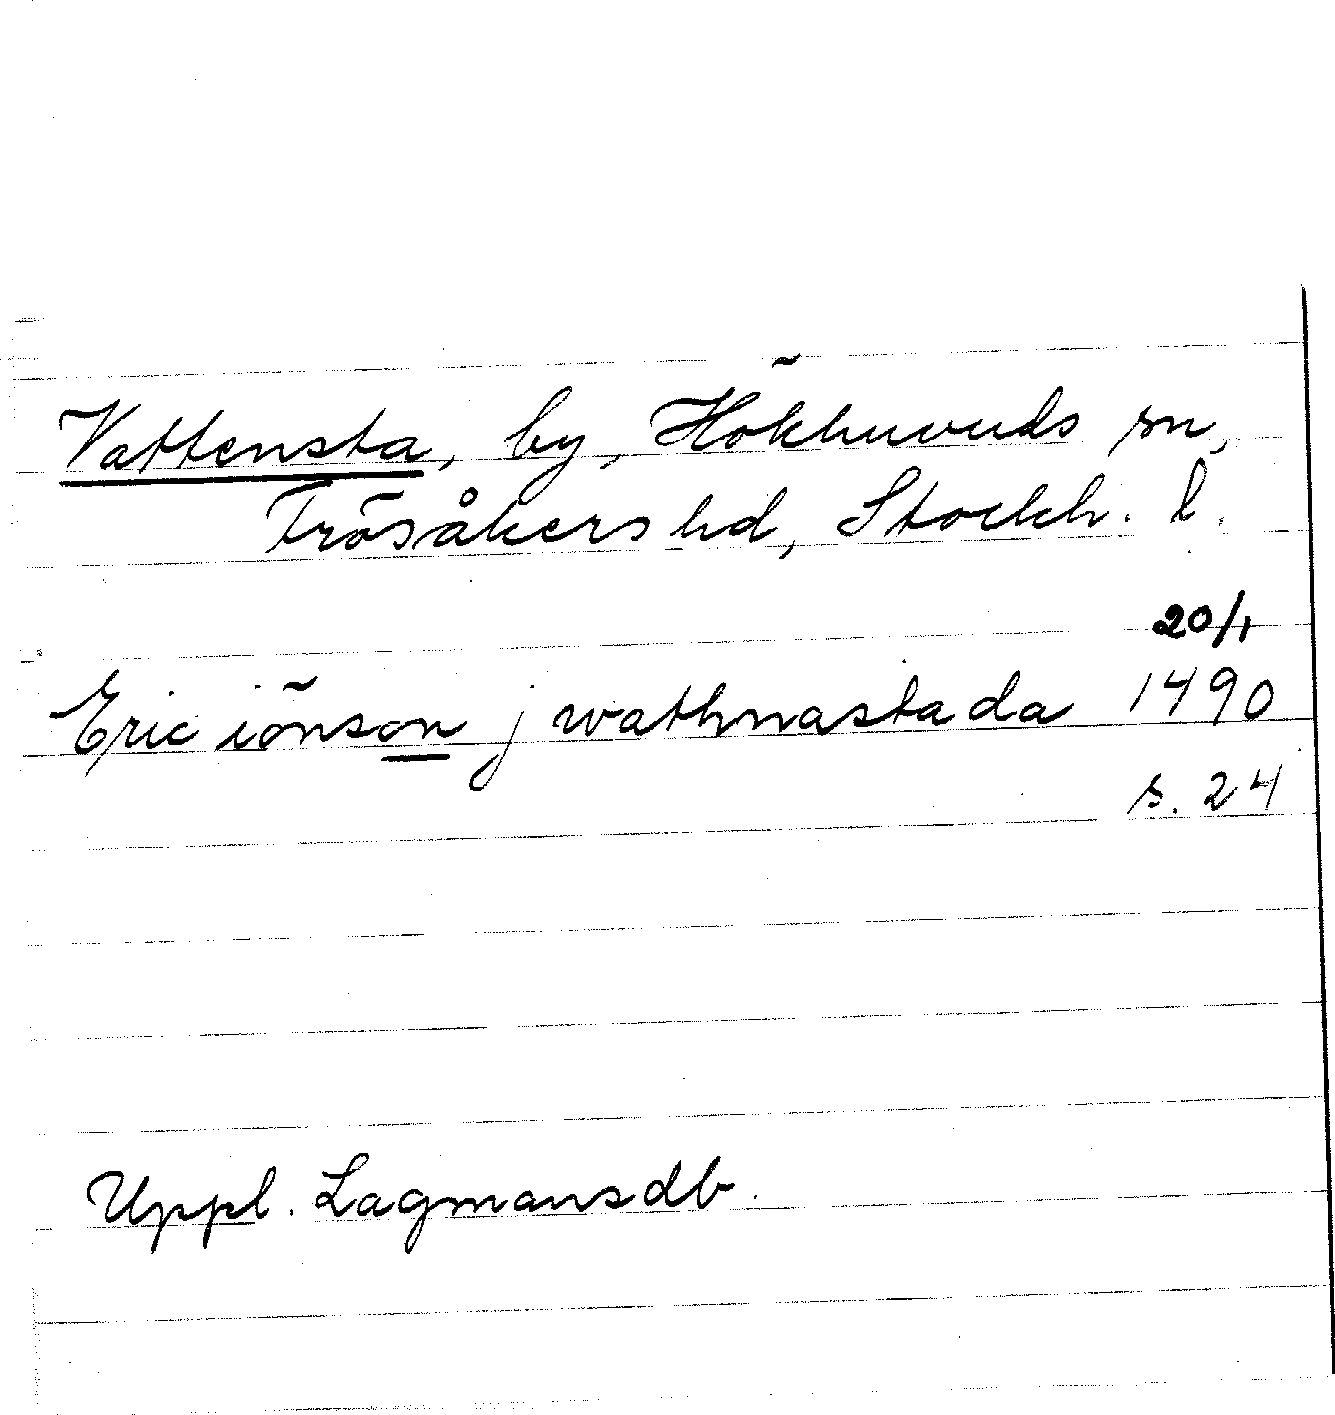 Vattensta, by, Hökhuvuds sn,
Frösåkers hd, Stockh. l.
20/1
Eric iönson j wathnastada 1490
s. 24
Uppl. Lagmansdb.